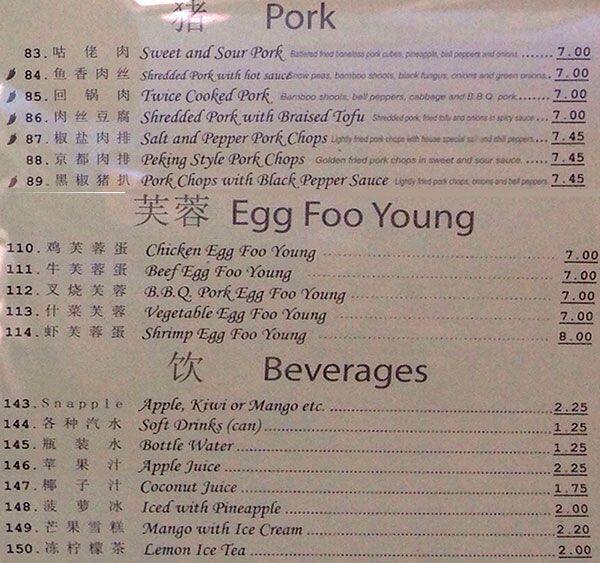 猪 Pork
83. 咕佬肉 Sweet and Sour Pork Battered fried boneless pork cubes, pineapple, bell peppers and onions. 7.00
84. 鱼香肉丝 Shredded Pork with hot sauce Snow peas, bamboo shoots, black fungus, onions and green onions. 7.00
85. 回锅肉 Twice Cooked Pork Bamboo shoots, bell peppers, cabbage and B.B.Q. pork 7.00
86. 肉丝豆腐 Shredded Pork with Braised Tofu Shredded pork, fried tofu and onions in spicy sauce 7.00
87. 椒盐肉排 Salt and Pepper Pork Chops Lightly fried pork chops with house special salt and chili peppers. 7.45
88. 京都肉排 Peking Style Pork Chops Golden fried pork chops in sweet and sour sauce. 7.45
89. 黑椒猪扒 Pork Chops with Black Pepper Sauce Lightly fried pork chops, onions and bell peppers. 7.45
芙蓉 Egg Foo Young
110. 鸡芙蓉蛋 Chicken Egg Foo Young 7.00
111. 牛芙蓉蛋 Beef Egg Foo Young 7.00
112. 叉烧芙蓉 B.B.Q. Pork Egg Foo Young 7.00
113. 什菜芙蓉 Vegetable Egg Foo Young 7.00
114. 虾芙蓉蛋 Shrimp Egg Foo Young 8.00
饮 Beverages
143. Snapple Apple, Kiwi or Mango etc. 2.25
144. 各种汽水 Soft Drinks (can) 1.25
145. 瓶装水 Bottle Water 1.25
146. 苹果汁 Apple Juice 2.25
147. 椰子汁 Coconut Juice 1.75
148. 菠萝冰 Iced with Pineapple 2.00
149. 芒果雪糕 Mango with Ice Cream 2.20
150. 冻柠檬茶 Lemon Ice Tea 2.00